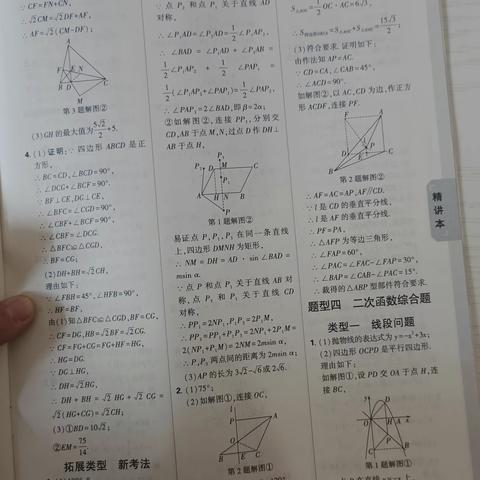 ∵ CF=FN+CN,
∴ √2CM=√2DF+AF,
∴ AF=√2(CM-DF);
第3题解图②
(3)GH的最大值为5√2/2+5.
4.(1)证明:∵ 四边形 ABCD 是正
方形,
∴ BC=CD,∠BCD=90°,
∴ ∠DCG+∠BCF=90°.
∵ BF⊥CE,DG⊥CE,
∴ ∠BFC=∠CGD=90°,
∴ ∠CBF+∠BCF=90°,
∴ ∠CBF=∠DCG.
∴ △BFC≌△CGD,
∴ BF=CG;
(2)DH+BH=√2CH,
理由如下:
∵ ∠FBH=45°,∠HFB=90°,
∴ HF=BF,
由(1)知△BFC≌△CGD,BF=CG,
∴ CF=DG,HB=√2BF=√2CG.
∵ CF=FG+CG=FG+HF=HG,
∴ HG=DG.
∵ DG⊥HG,
∴ DH=√2HG,
∴ DH+BH=√2HG+√2CG=
√2(HG+CG)=√2CH;
(3)①BD=10√2;
②EM=75/14.
拓展类型 新考法
∵ 点 P 和点 P₁ 关于直线 AD
对称,
∴ ∠P₁AD=∠PAD=1/2∠P₁AP,
∴ ∠BAD=∠P₁AD+∠P₁AB=
1/2∠P₁AP₂+1/2∠PAP₁=
1/2(∠P₁AP₂+∠PAP₁)=1/2∠PAP₂,
∴ ∠PAP₂=2∠BAD,即β=2α;
②如解图②,连接 PP₁,分别交
CD,AB于点M,N,过点D作DH⊥
AB于点H,
第1题解图②
易证点 P,P₁,P₃ 在同一条直线
上,四边形DMNH为矩形,
∴ NM=DH=AD·sin∠BAD=
msin α.
∵ 点 P 和点 P₁ 关于直线 AB 对
称,点 P₁ 和 P₃ 关于直线 CD
对称,
∴ PP₁=2NP₁,P₁P₃=2P₁M,
∴ PP₃=PP₁+P₁P₃=2NP₁+2P₁M=
2(NP₁+P₁M)=2NM=2msin α.
∴ P,P₃两点间的距离为2msin α;
(3)AP的长为3√2-√6或2√6.
2.(1)75°;
(2)如解图①,连接OC,
第2题解图①
OC·AC=6√3,
(3)符合要求.证明如下:
由作法知AP=AC.
∵ CD=CA,∠CAB=45°,
∴ ∠ACD=90°.
如解图②,以AC,CD为边,作正方
形ACDF,连接PF.
第2题解图②
∴ AF=AC=AP,AF∥CD.
∵ l是CD的垂直平分线,
∴ l是AF的垂直平分线.
∴ PF=PA,
∴ △AFP为等边三角形,
∴ ∠FAP=60°,
∴ ∠PAC=∠FAC-∠FAP=30°,
∴ ∠BAP=∠CAB-∠PAC=15°.
∴ 裁得的△ABP型部件符合要求.
题型四 二次函数综合题
类型一 线段问题
1.(1)抛物线的表达式为y=-x²+3x;
(2)四边形OCPD是平行四边形.
理由如下:
如解图①,设PD交OA于点H,连
接BC,
第1题解图①
精讲本